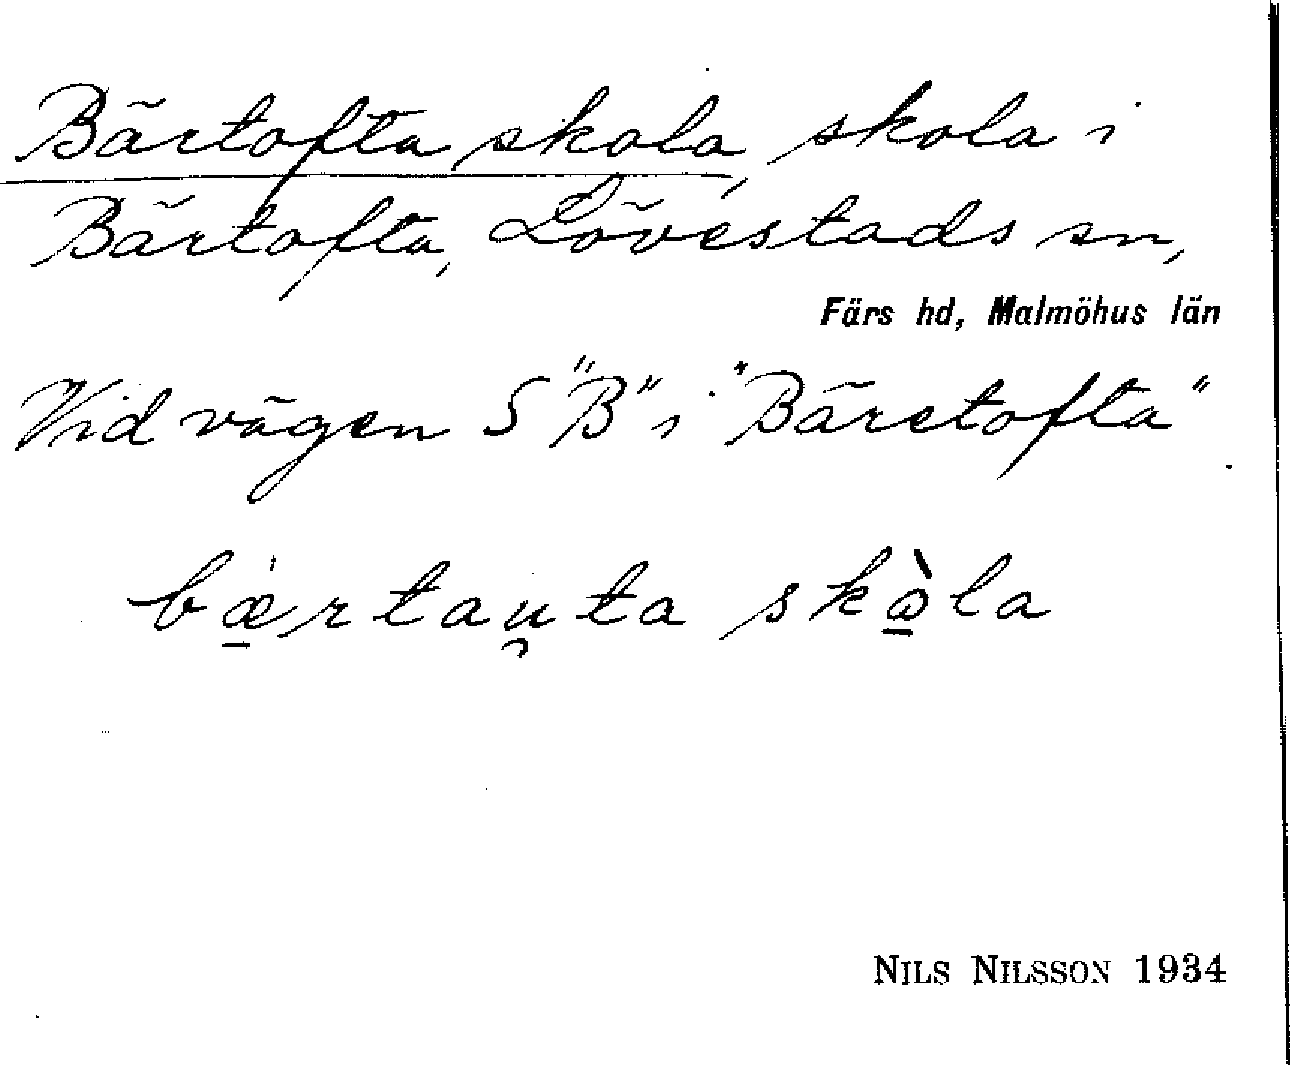 Bärtofta skola, skola i
Bärtofta, Lövestads sn,
Färs hd, Malmöhus län
Vid vägen S "B" i "Bäretofta"
bǽ̱rtau̯ta skò̱la
NILS NILSSON 1934